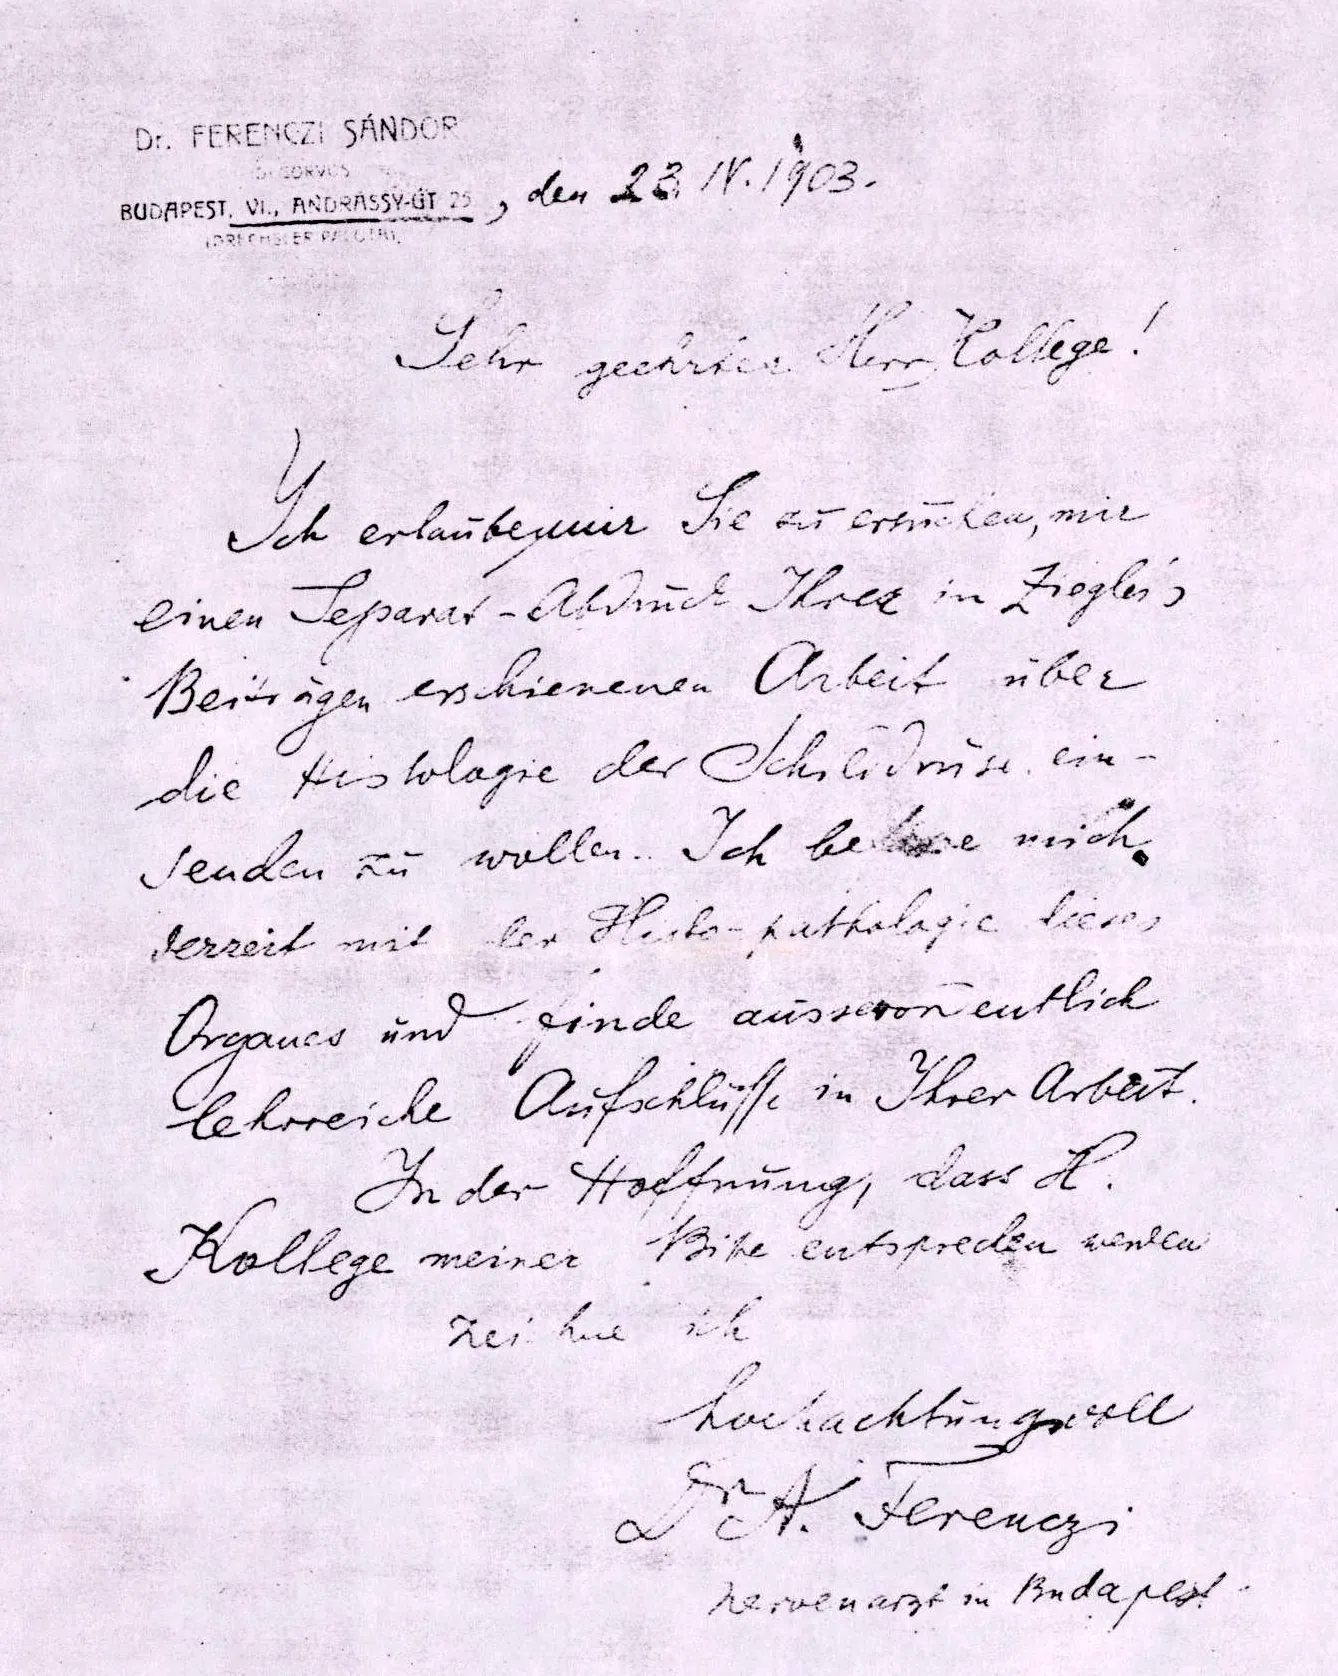 Dr. FERENCZI SÁNDOR
BUDAPEST, VI., ANDRÁSSY-ÚT 25, den 23. IV. 1903.
Sehr geehrter Herr Kollege!
Ich erlaube mir Sie zu ersuchen, mir
einen Separat-Abdruck Ihrer in Ziegler's
Beiträgen erschienenen Arbeit über
die Histologie der Schilddrüse ein-
senden zu wollen. Ich mich
derzeit mit der Histo-pathologie dieses
Organes und finde ausserordentlich
lehrreiche Aufschlüsse in Ihrer Arbeit.
In der Hoffnung, dass H.
Kollege meiner Bitte entsprechen werden
zeichne ich
hochachtungsvoll
Dr A. Ferenczi
nervenarzt in Budapest.